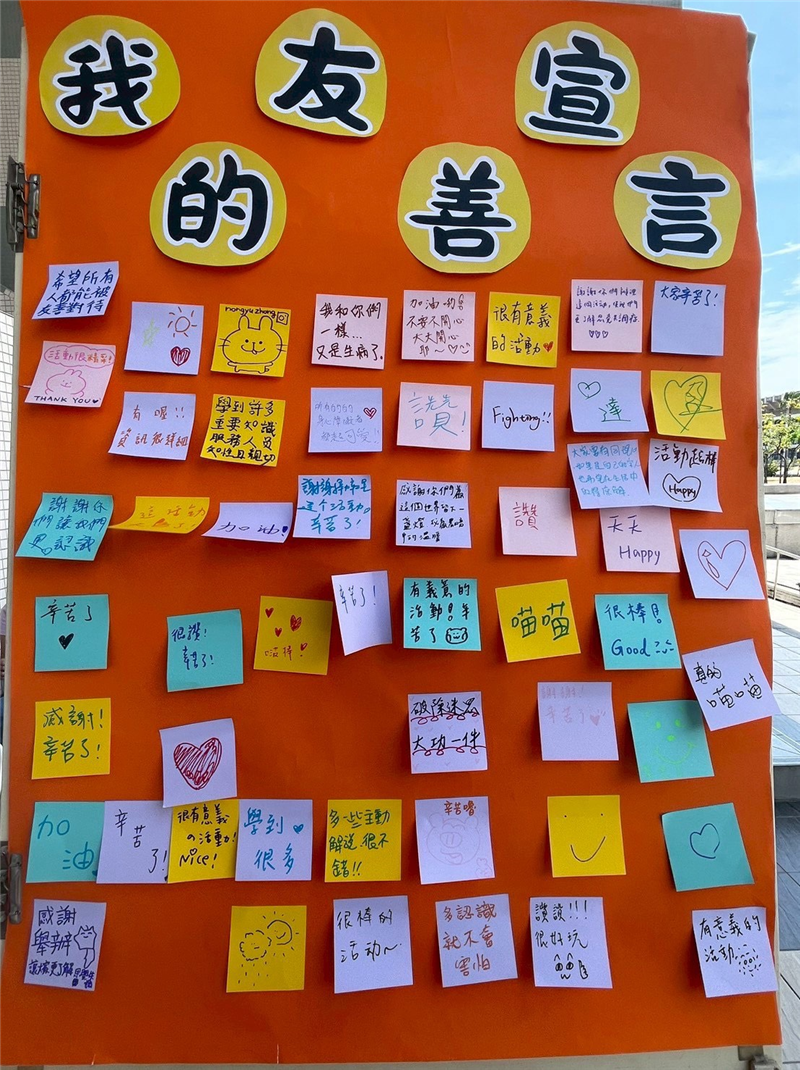 我的友善宣言
希望所有
人都能被
友善對待
nongyu zhang
我和你們
一樣...
又是生病了.
加油喲!
不要不開心
大大開心
耶~
很有意義
的活動
大家辛苦了!
活動很精彩!
THANK YOU
有喔!!
資訊很詳細
學到許多
重要知識
服務人員
知性且親切
讚!
Fighting!!
達
活動超棒
Happy
謝謝你
們讓我們
更認識
這活動
加油!
謝謝舉辦
這個活動。
辛苦了!
感謝你們為
這個世界留下一
盞燈
讚
天天
Happy
辛苦了
很讚!
辛苦了!
辛苦了!
有意義的
活動!辛
苦了
喵喵
很棒!
Good
真的
喵喵
感謝!
辛苦了!
破除迷思
大功一件
謝謝!
辛苦了
加
油
辛
苦
了!
很有意義
の活動!
Nice!
學到
很多
多一些主動
解說,很不
錯!!
辛苦嚕
感謝
舉辦
很棒的
活动~
多認識
就不會
害怕
讚讚!!!
很好玩
有意義的
活動